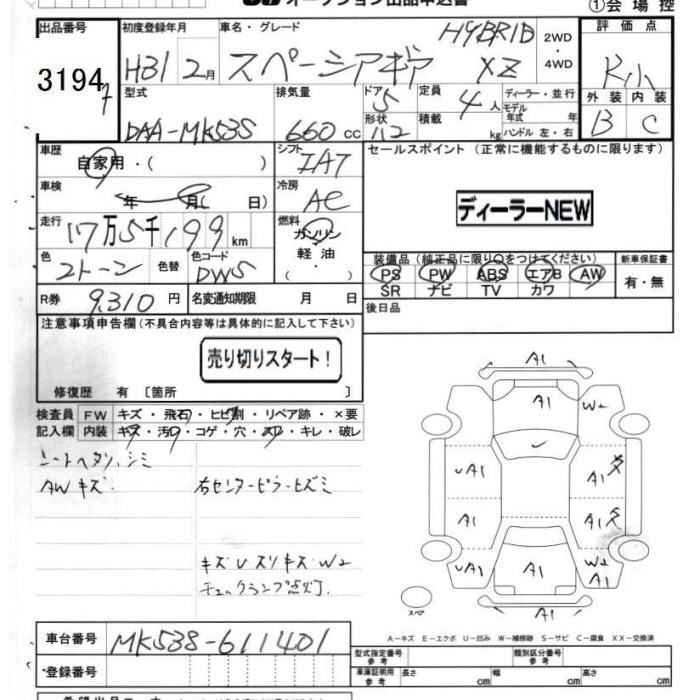 オークション出品申込書
①会場控
出品番号 初度登録年月 車名・グレード HYBRID 2WD・4WD 評価点
3194 H31 2月 スペーシアギア XZ R小
型式 排気量 ドア 5 定員 4人 ディーラー・並行 外装 内装
DAA-MK53S 660cc 形状 積載 kg モデル年式 年 ハンドル 左・右 B C
車歴 自家用・( ) シフト IAT セールスポイント(正常に機能するものに限ります)
車検 年 月( 日) 冷房 AC
ディーラーNEW
走行 17万5千199km 燃料 ガソリン 軽油 ・( )
色 2トーン 色替 色コード DW5 装備品(純正品に限り○をつけてください) 新車保証書
PS PW ABS エアB AW 有・無
SR ナビ TV カワ
R券 9,310円 名変通知期限 月 日 後日品
注意事項申告欄(不具合内容等は具体的に記入して下さい)
売り切りスタート!
修復歴 有〔箇所 〕
検査員 FW キズ・飛石・ヒビ割・リペア跡・×要
記入欄 内装 キズ・汚れ・コゲ・穴・スレ・キレ・破レ
シートヘタリ、シミ
AWキズ. 右センターピラーヒズミ
キズUスリキズW2
チェックランプ点灯.
A1
A1 W2
UA1 A1
A1 A1
UA1 A1 W2 A1
スペア A1
A-キズ E-エクボ U-凹み W-補修跡 S-サビ C-腐食 XX-交換済
車台番号 MK53S-611401
登録番号
型式指定番号 参考 類別区分番号 参考
車庫証明用 参考 長さ cm 幅 cm 高さ cm